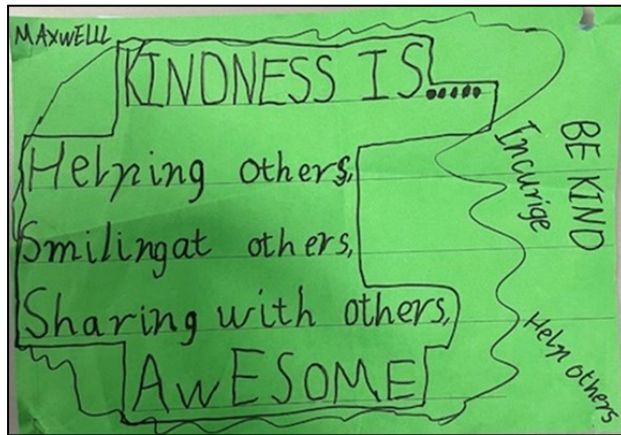 MAXWELLL
KINDNESS IS.....
Helping others,
Smiling at others,
Sharing with others,
AwESOME
BE KIND
Incurige
Help others